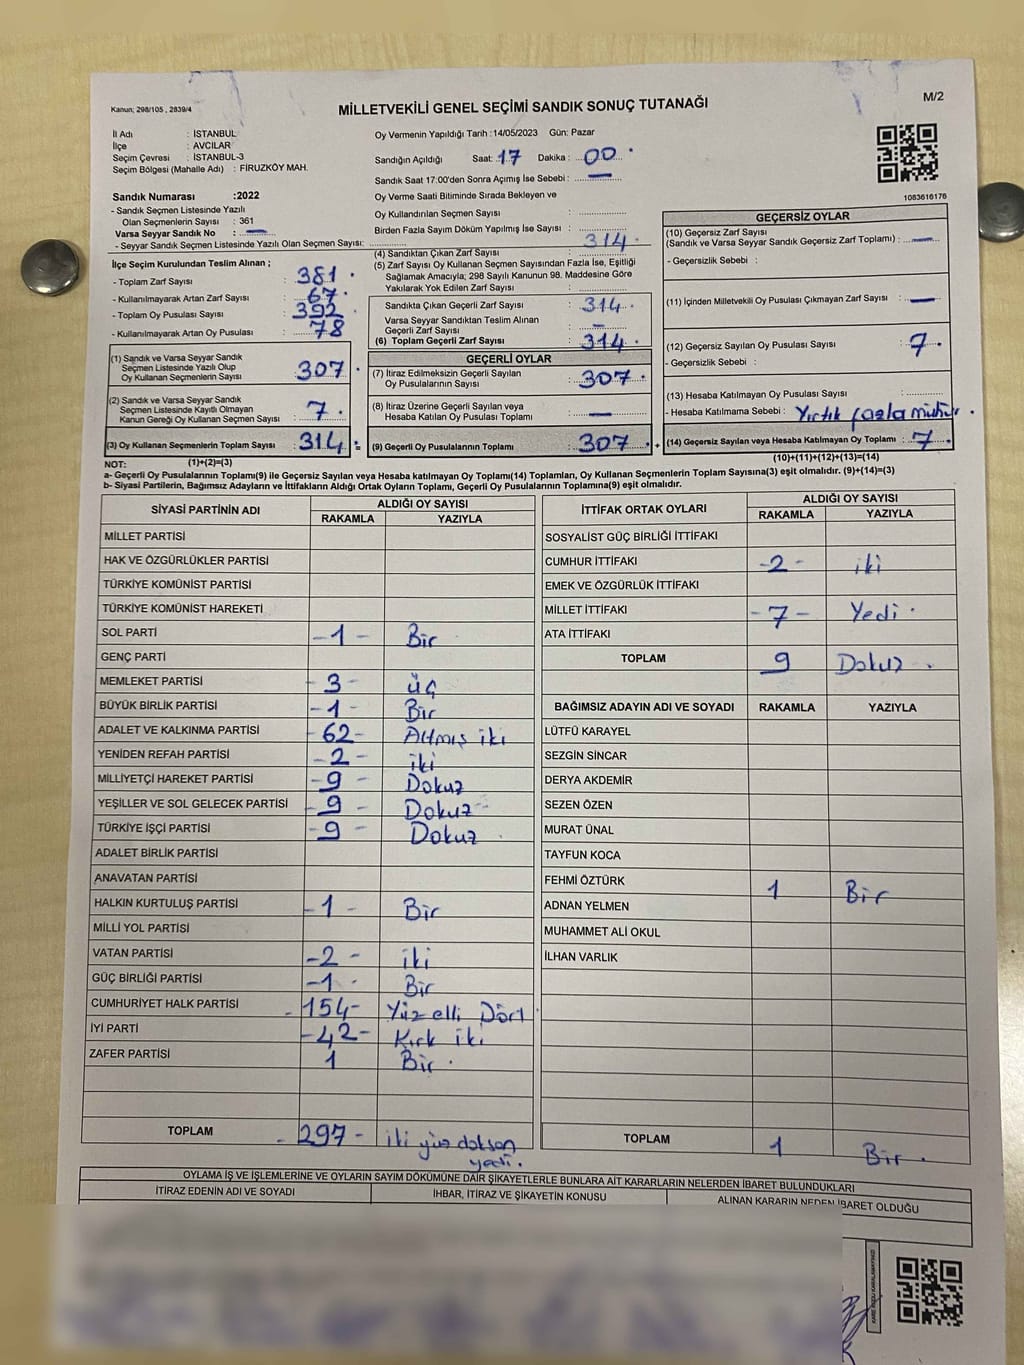 Kanun; 298/105 , 2839/4
MİLLETVEKİLİ GENEL SEÇİMİ SANDIK SONUÇ TUTANAĞI
M/2
İl Adı : İSTANBUL
İlçe : AVCILAR
Seçim Çevresi : İSTANBUL-3
Seçim Bölgesi (Mahalle Adı) : FİRUZKÖY MAH.
Oy Vermenin Yapıldığı Tarih : 14/05/2023 Gün: Pazar
Sandığın Açıldığı Saat: 17 Dakika : 00
Sandık Saat 17:00'den Sonra Açımış İse Sebebi : —
Oy Verme Saati Bitiminde Sırada Bekleyen ve
Oy Kullandırılan Seçmen Sayısı :
Birden Fazla Sayım Döküm Yapılmış İse Sayısı :
1083616176
Sandık Numarası :2022
- Sandık Seçmen Listesinde Yazılı
Olan Seçmenlerin Sayısı : 361
Varsa Seyyar Sandık No : —
- Seyyar Sandık Seçmen Listesinde Yazılı Olan Seçmen Sayısı:
İlçe Seçim Kurulundan Teslim Alınan ;
- Toplam Zarf Sayısı : 381
- Kullanılmayarak Artan Zarf Sayısı : 67
- Toplam Oy Pusulası Sayısı : 392
- Kullanılmayarak Artan Oy Pusulası : 78
(1) Sandık ve Varsa Seyyar Sandık
Seçmen Listesinde Yazılı Olup
Oy Kullanan Seçmenlerin Sayısı : 307
(2) Sandık ve Varsa Seyyar Sandık
Seçmen Listesinde Kayıtlı Olmayan
Kanun Gereği Oy Kullanan Seçmen Sayısı : 7
(3) Oy Kullanan Seçmenlerin Toplam Sayısı : 314 =
(1)+(2)=(3)
(4) Sandıktan Çıkan Zarf Sayısı : 314
(5) Zarf Sayısı Oy Kullanan Seçmen Sayısından Fazla İse, Eşitliği
Sağlamak Amacıyla; 298 Sayılı Kanunun 98. Maddesine Göre
Yakılarak Yok Edilen Zarf Sayısı :
Sandıkta Çıkan Geçerli Zarf Sayısı : 314
Varsa Seyyar Sandıktan Teslim Alınan
Geçerli Zarf Sayısı : —
(6) Toplam Geçerli Zarf Sayısı : 314
GEÇERLİ OYLAR
(7) İtiraz Edilmeksizin Geçerli Sayılan
Oy Pusulalarının Sayısı : 307
(8) İtiraz Üzerine Geçerli Sayılan veya
Hesaba Katılan Oy Pusulası Toplamı : —
(9) Geçerli Oy Pusulalarının Toplamı : 307 +
GEÇERSİZ OYLAR
(10) Geçersiz Zarf Sayısı
(Sandık ve Varsa Seyyar Sandık Geçersiz Zarf Toplamı) : —
- Geçersizlik Sebebi :
(11) İçinden Milletvekili Oy Pusulası Çıkmayan Zarf Sayısı : —
(12) Geçersiz Sayılan Oy Pusulası Sayısı : 7
- Geçersizlik Sebebi :
(13) Hesaba Katılmayan Oy Pusulası Sayısı :
- Hesaba Katılmama Sebebi : Yırtık fazla mühür
(14) Geçersiz Sayılan veya Hesaba Katılmayan Oy Toplamı : 7
(10)+(11)+(12)+(13)=(14)
NOT:
a- Geçerli Oy Pusulalarının Toplamı(9) ile Geçersiz Sayılan veya Hesaba katılmayan Oy Toplamı(14) Toplamları, Oy Kullanan Seçmenlerin Toplam Sayısına(3) eşit olmalıdır. (9)+(14)=(3)
b- Siyasi Partilerin, Bağımsız Adayların ve İttifakların Aldığı Ortak Oyların Toplamı, Geçerli Oy Pusulalarının Toplamına(9) eşit olmalıdır.
SİYASİ PARTİNİN ADI ALDIĞI OY SAYISI
RAKAMLA YAZIYLA
MİLLET PARTİSİ
HAK VE ÖZGÜRLÜKLER PARTİSİ
TÜRKİYE KOMÜNİST PARTİSİ
TÜRKİYE KOMÜNİST HAREKETİ
SOL PARTİ -1- Bir
GENÇ PARTİ
MEMLEKET PARTİSİ - 3 - üç
BÜYÜK BİRLİK PARTİSİ -1- Bir
ADALET VE KALKINMA PARTİSİ -62- Altmış iki
YENİDEN REFAH PARTİSİ -2- iki
MİLLİYETÇİ HAREKET PARTİSİ -9- Dokuz
YEŞİLLER VE SOL GELECEK PARTİSİ -9- Dokuz
TÜRKİYE İŞÇİ PARTİSİ -9- Dokuz
ADALET BİRLİK PARTİSİ
ANAVATAN PARTİSİ
HALKIN KURTULUŞ PARTİSİ -1- Bir
MİLLİ YOL PARTİSİ
VATAN PARTİSİ -2- iki
GÜÇ BİRLİĞİ PARTİSİ -1- Bir
CUMHURİYET HALK PARTİSİ -154- Yüz elli Dört
İYİ PARTİ -42- Kırk iki
ZAFER PARTİSİ 1 Bir
TOPLAM -297- iki yüz doksan
yedi.
İTTİFAK ORTAK OYLARI ALDIĞI OY SAYISI
RAKAMLA YAZIYLA
SOSYALİST GÜÇ BİRLİĞİ İTTİFAKI
CUMHUR İTTİFAKI -2- iki
EMEK VE ÖZGÜRLÜK İTTİFAKI
MİLLET İTTİFAKI -7- Yedi
ATA İTTİFAKI
TOPLAM 9 Dokuz
BAĞIMSIZ ADAYIN ADI VE SOYADI RAKAMLA YAZIYLA
LÜTFÜ KARAYEL
SEZGİN SİNCAR
DERYA AKDEMİR
SEZEN ÖZEN
MURAT ÜNAL
TAYFUN KOCA
FEHMİ ÖZTÜRK 1 Bir
ADNAN YELMEN
MUHAMMET ALİ OKUL
İLHAN VARLIK
TOPLAM 1 Bir
OYLAMA İŞ VE İŞLEMLERİNE VE OYLARIN SAYIM DÖKÜMÜNE DAİR ŞİKAYETLERLE BUNLARA AİT KARARLARIN NELERDEN İBARET BULUNDUKLARI
İTİRAZ EDENİN ADI VE SOYADI İHBAR, İTİRAZ VE ŞİKAYETİN KONUSU ALINAN KARARIN NEDEN İBARET OLDUĞU